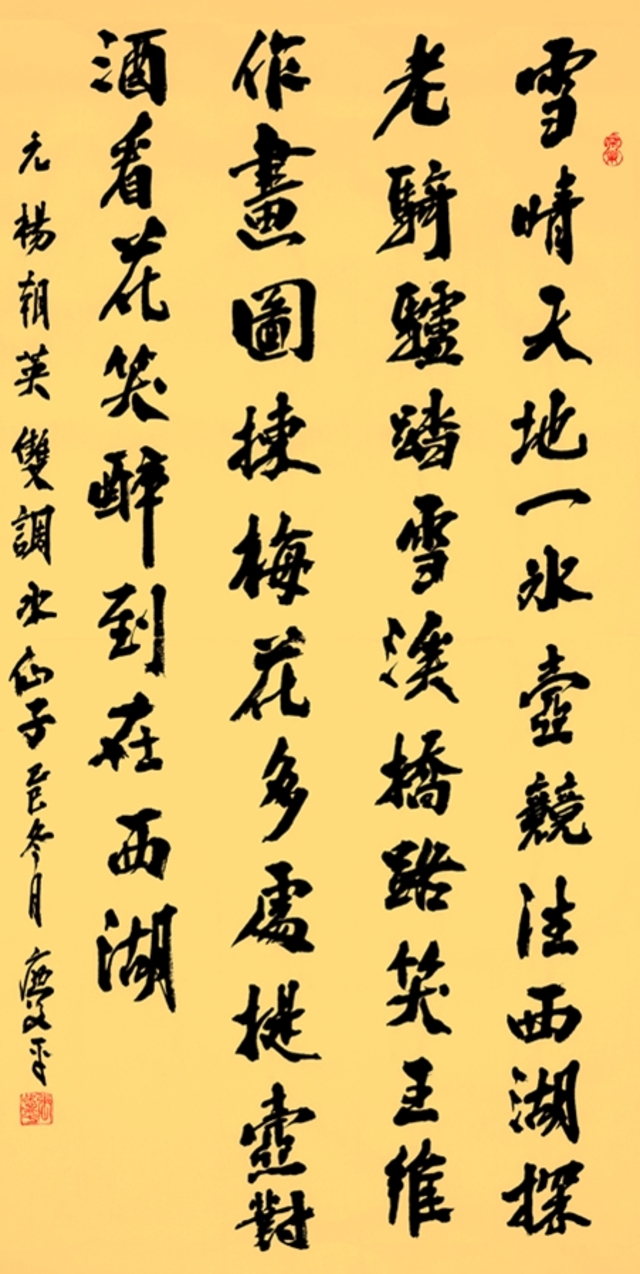 雪晴天地一冰壺競往西湖探
老騎驢踏雪溪橋路笑王維
作畫圖揀梅花多處提壺對
酒看花笑醉到在西湖
元楊朝英雙調水仙子乙巳冬月